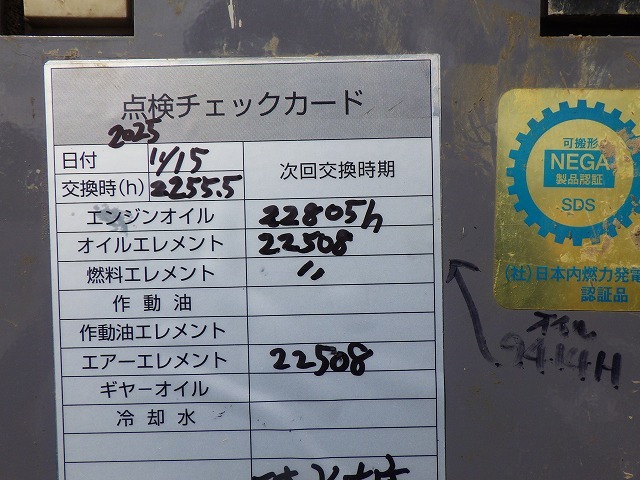 点検チェックカード
2025
日付 11/15 次回交換時期
交換時(h) 22555.5
エンジンオイル 22805h
オイルエレメント 22508
燃料エレメント 〃
作動油
作動油エレメント
エアーエレメント 22508
ギヤーオイル
冷却水
可搬形
NEGA
製品認証
SDS
(社)日本内燃力発電
認証品
オイル